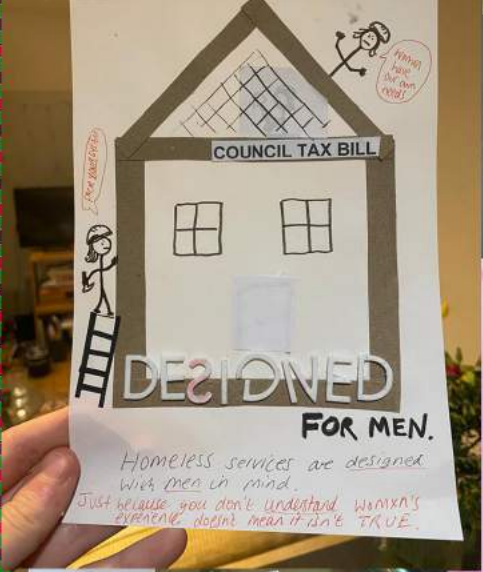 Womxn
have
our own
needs
COUNCIL TAX BILL
DESIGNED
FOR MEN.
Homeless services are designed
with men in mind.
Just because you don't understand womxn's
experience, doesn't mean it isn't TRUE.